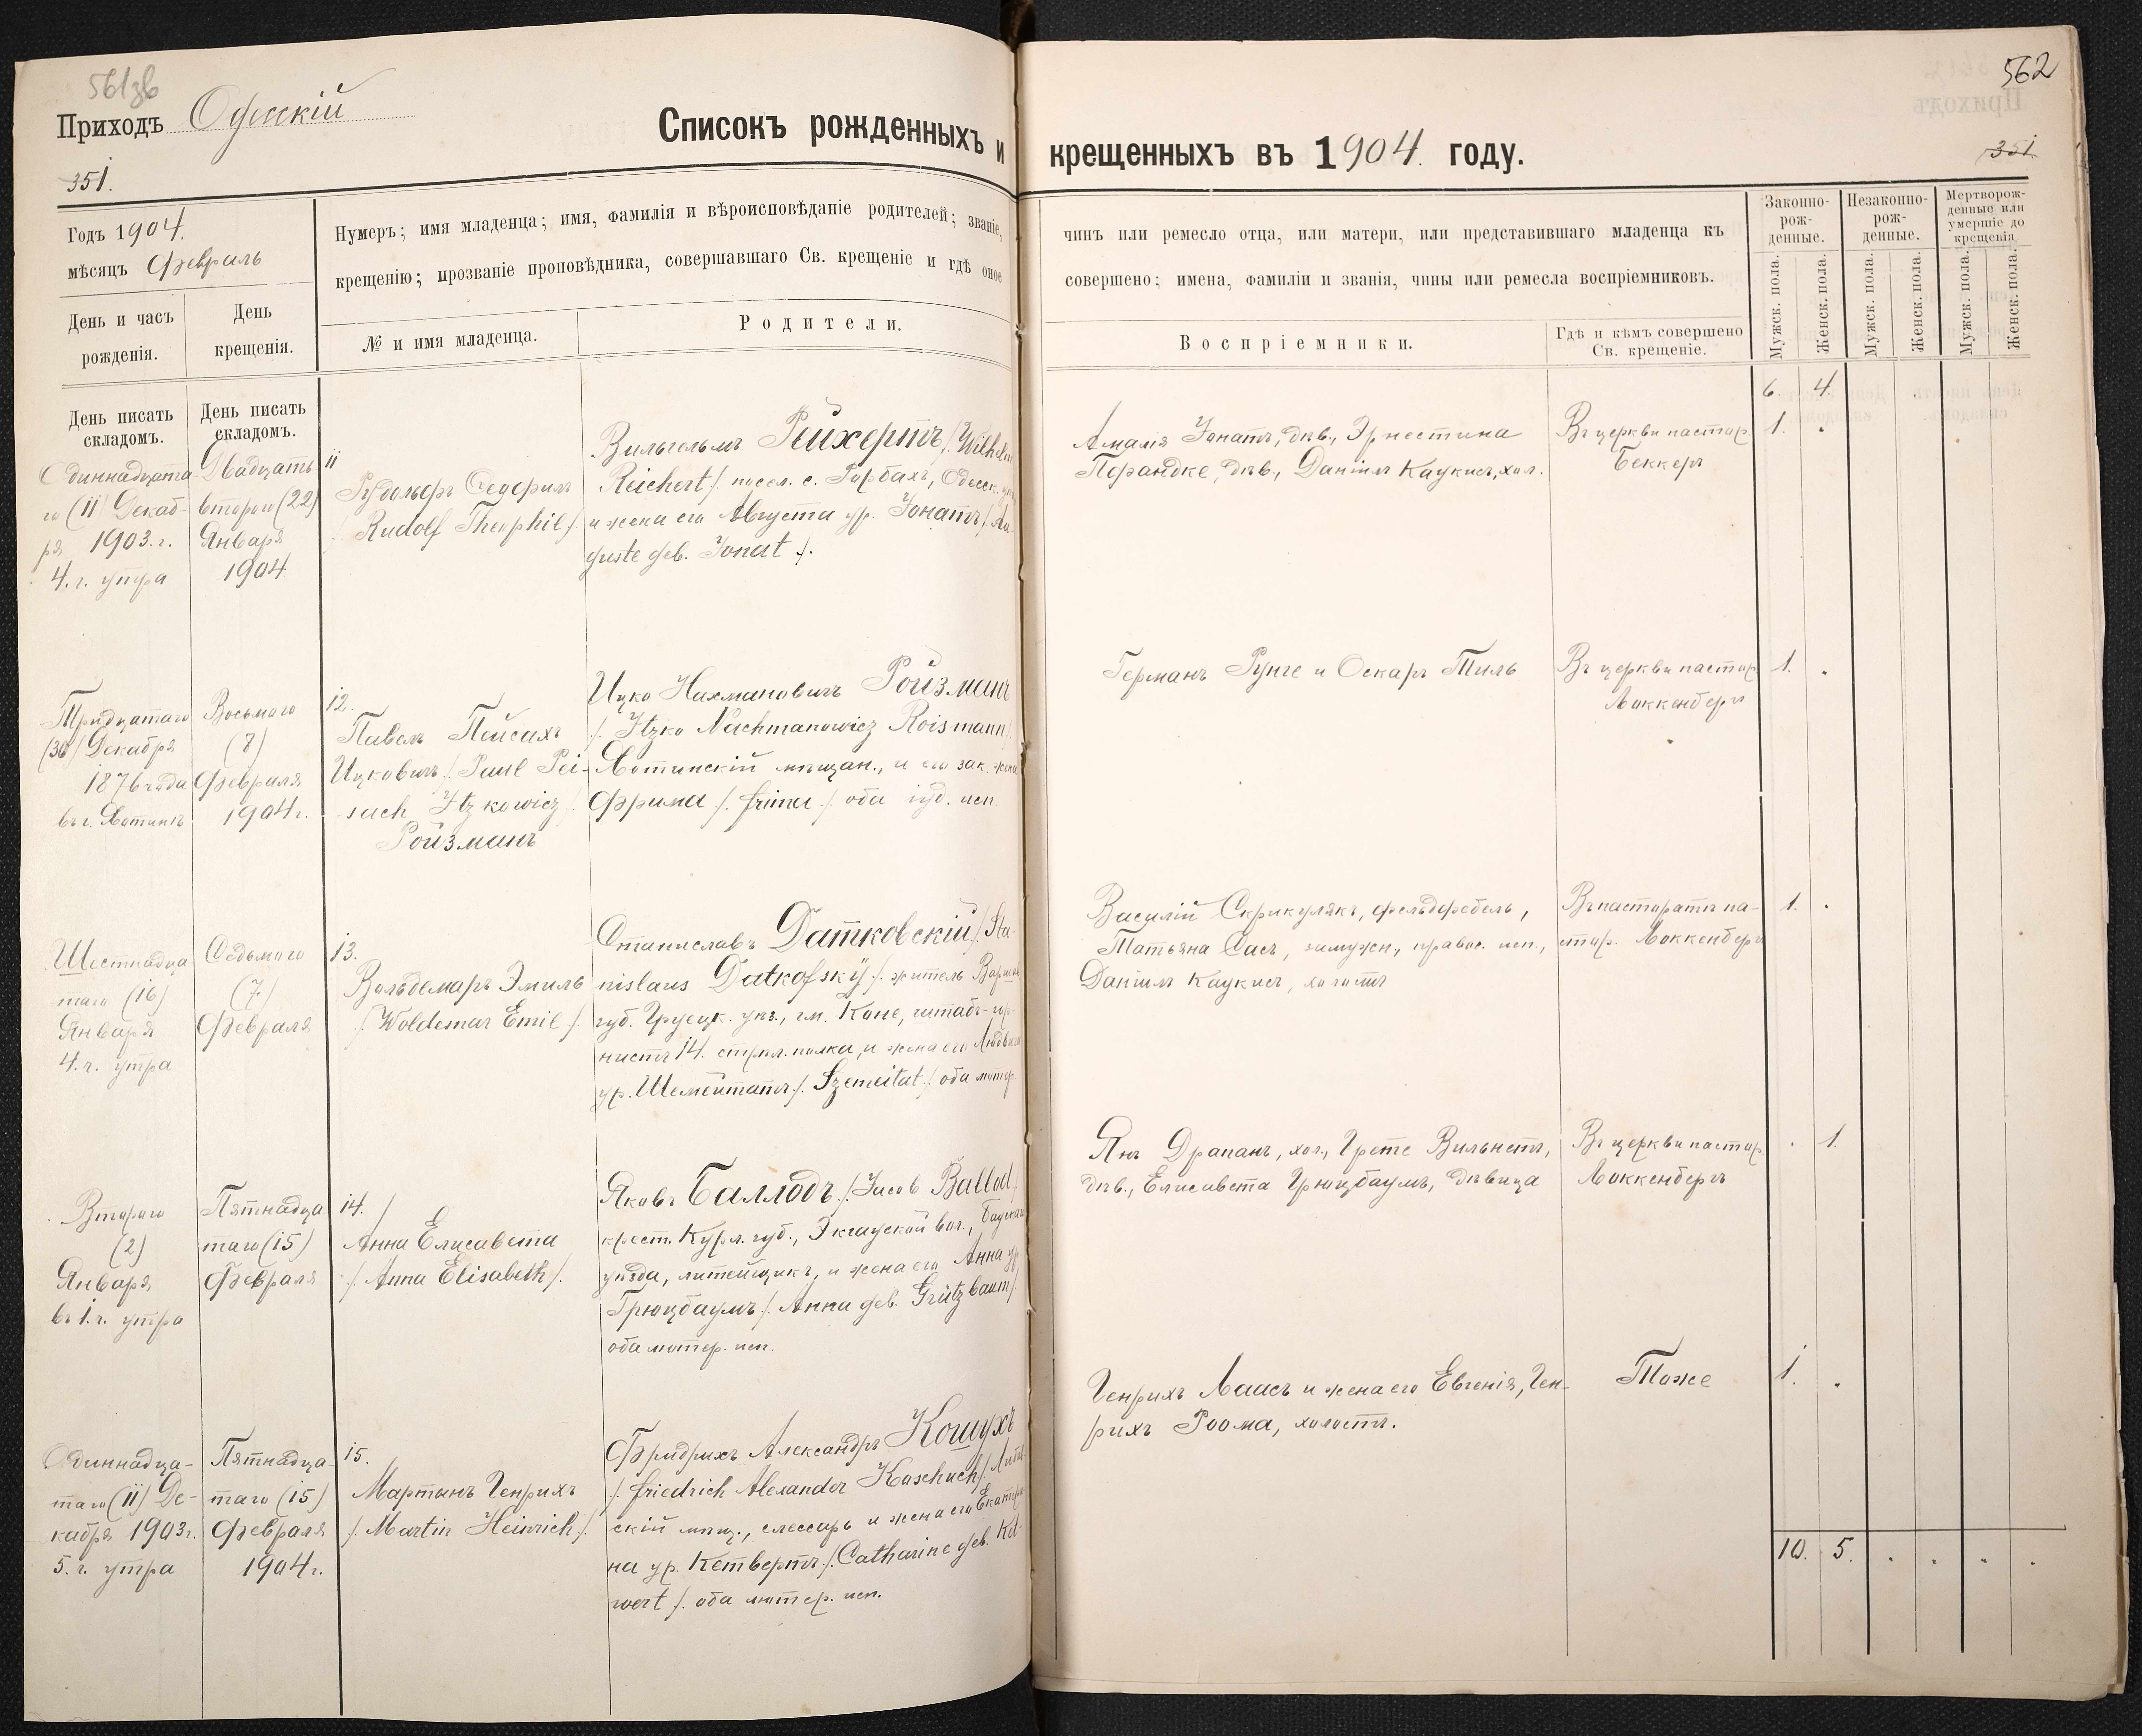 561зв
Приходъ Одесскій
351.
Списокъ рожденныхъ и
Годъ 1904.
мѣсяцъ Февраль
День и часъ рожденія.
День крещенія.
Нумеръ; имя младенца; имя, фамилія и вѣроисповѣданіе родителей; званіе,
крещенію; прозваніе проповѣдника, совершавшаго Св. крещеніе и гдѣ оное
№ и имя младенца.
Родители.
День писать складомъ.
День писать складомъ.
Одиннадцата-
го (11) Декаб-
ря 1903. г.
4. ч. утра
Двадцать
второго (22)
Января
1904
11
Рудольфъ Теофилъ
/. Rudolf Theophil /.
Вильгельмъ Рейхертъ /. Wilhelm
Reichert /. посел. с. Горбахъ, Одесск. у.
и жена его Августа ур. Іонатъ /. Au-
guste geb. Jonat /.
Тридцатаго
(30) Декабря
1876 года
въ г. Хотинѣ
Восьмаго
(8)
Февраля
1904 г.
12.
Павелъ Пейсахъ
Ицковичъ /. Paul Pei-
sach Itzkowicz /.
Ройзманъ
Ицко Нахмановичъ Ройзманъ
/. Itzko Nachmanowicz Roismann /.
Хотинскій мѣщан., и его зак. жена
Фрима /. Frima /. оба іуд. исп.
Шестнадца
таго (16)
Января
4. ч. утра
Седьмого
(7.)
Февраля
13.
Вольдемаръ Эмиль
/. Woldemar Emil /.
Станиславъ Датковскій /. Sta-
nislaus Datkofsky /. житель Варшав.
губ. Груецк. уѣз., гм. Коне, штабъ-гор-
нистъ 14. стрѣл. полка, и жена его
ур. Шемейтатъ /. Szemeitat /. оба лютер.
Второго
(2)
Января
въ 1. ч. утра
Пятнадца
таго (15)
Февраля
14.
Анна Елисавета
/. Anna Elisabeth /.
Яковъ Баллодъ /. Jacob Ballod /.
крест. Курл. губ., Экгауской вол., Баускаго
уѣзда, литейщикъ, и жена его Анна ур.
Грюцбаумъ /. Anna geb. Grützbaum /.
оба лютер. исп.
Одиннадца-
таго (11) Де-
кабря 1903 г.
5. ч. утра
Пятнадца-
таго (15)
Февраля
1904 г.
15.
Мартинъ Генрихъ
/. Martin Heinrich /.
Фридрихъ Александръ Кошухъ
/. Friedrich Alexander Koschuch /.
скій мѣщ., слесарь и жена его Екатери-
на ур. Кетвертъ /. Catharine geb. Ket-
wert /. оба лютер. исп.
562
351
крещенныхъ въ 1904. году.
чинъ или ремесло отца, или матери, или представившаго младенца къ
совершено; имена, фамиліи и званія, чины или ремесла воспріемниковъ.
Воспріемники.
Гдѣ и кѣмъ совершено Св. крещеніе.
Законно-рож-денные.
Незаконно-рож-денные.
Мертворож-денные или умершіе до крещенія
Мужск. пола.
Женск. пола.
Мужск. пола.
Женск. пола.
Мужск. пола.
Женск. пола.
6. 4
Амалія Іонатъ, дѣв., Эрнестина
Порандке, дѣв., Даніилъ Каукисъ, хол.
Въ церкви пастор.
Беккеръ
1.
Германъ Рунге и Оскаръ Тиль
Въ церкви пастор.
Локкенбергъ
1.
Василій Скрикулякъ, фельдфебель,
Татьяна Сасъ, замужн., правос. исп.,
Даніилъ Каукисъ, холостъ
Въ пасторатѣ па-
стор. Локкенбергъ
1.
Янъ Драпанъ, хол., Грете Вильнетъ,
дѣв., Елисавета Грюцбаумъ, дѣвица
Въ церкви пастор.
Локкенбергъ
1.
Генрихъ Лаасъ и жена его Евгенія, Ген-
рихъ Роома, холостъ.
Тоже
1.
10. 5.